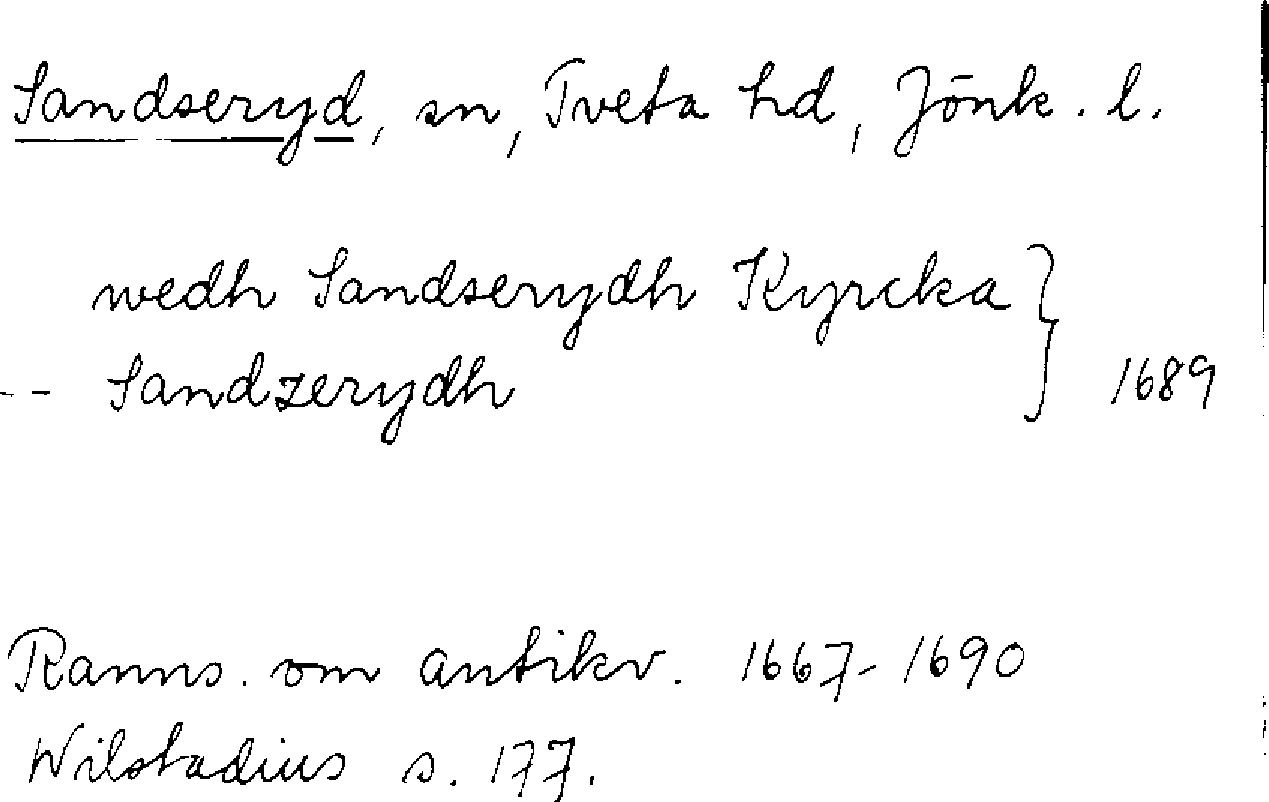 Sandseryd, sn, Tveta hd, Jönk. l.
wedh Sandserydh Kyrcka }
-- Sandzerydh } 1689
Ranns. om antikv. 1667-1690
Wilstadius s. 177.